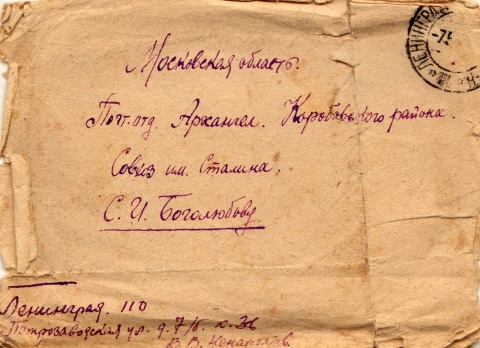 Московская область.
Почт. отд. Архангел. Коробовского района.
Совхоз им. Сталина.
С. И. Боголюбову
Ленинград. 110
Петрозаводская ул. д. 7/6. к. 36
В. В.
ЛЕНИНГРАД